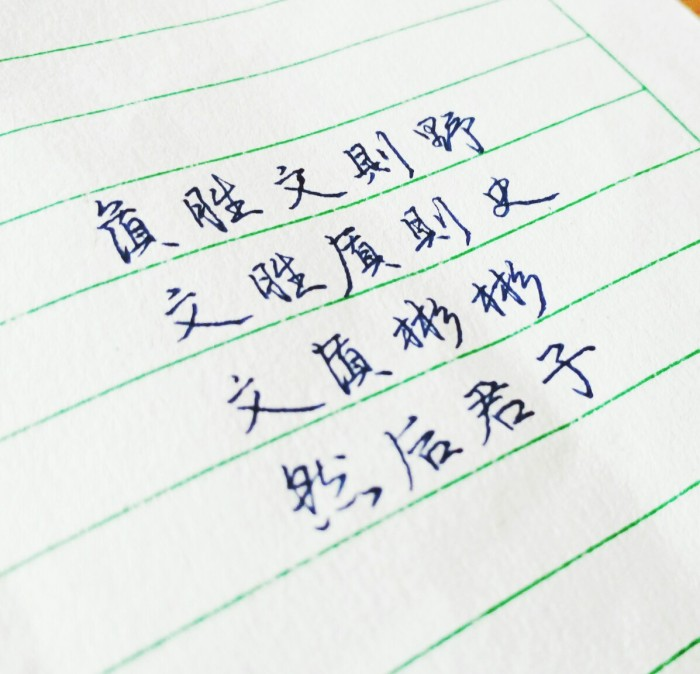 質胜文則野
文胜質則史
文質彬彬
然后君子